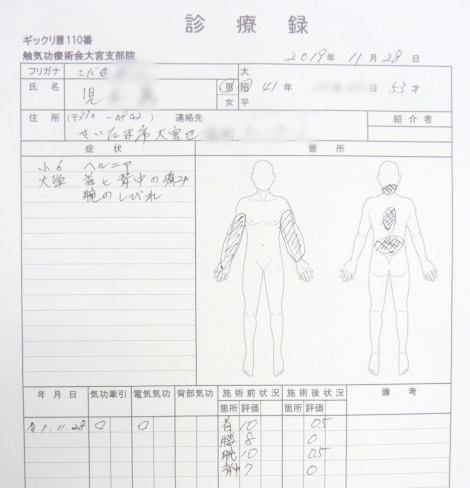 診療録
ギックリ腰110番
触気功療術会大宮支部院
2019年 11月 28日
フリガナ こだま
氏名 児
男 女
大 昭 平
41年 53才
住所 (〒330- ) 連絡先
さいたま市大宮区
紹介者
症状 箇所
小6 ヘルニア
大学 首と背中の痛み
腕のしびれ
年月日 気功牽引 電気気功 背部気功 施術前状況 施術後状況 備考
箇所 評価 箇所 評価
令1.11.28 0 0 首 10 0.5
腰 8 0
腕 10 0.5
背中 7 0